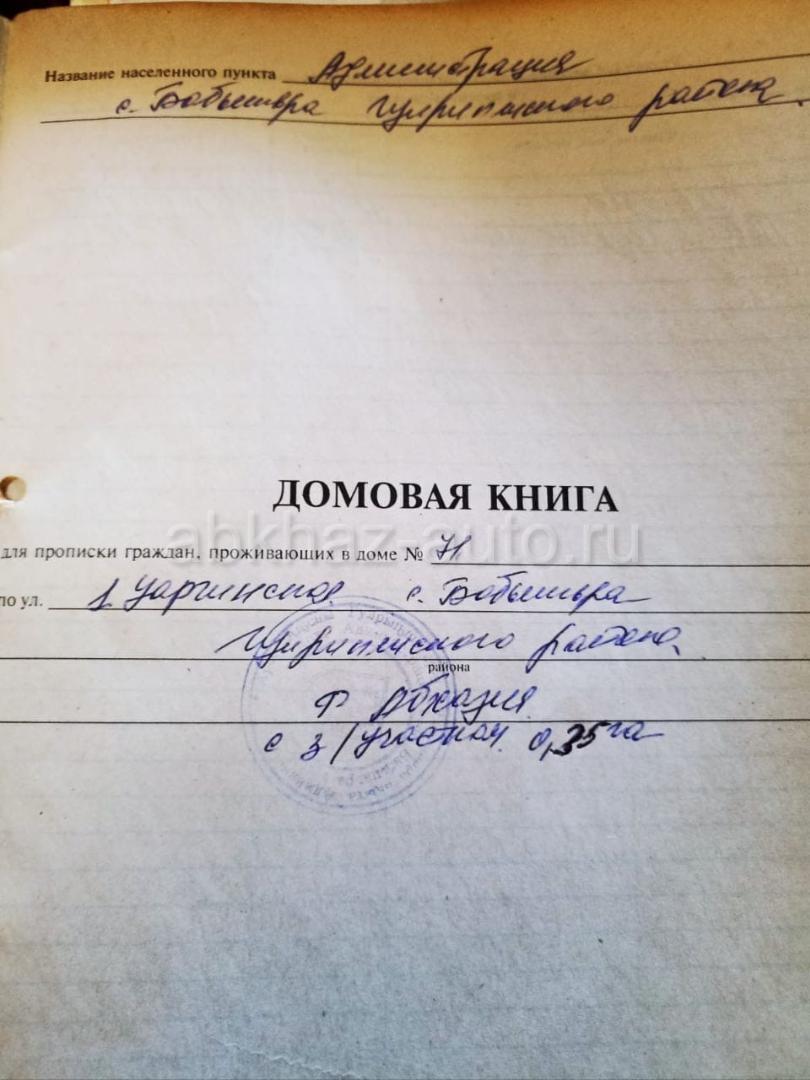 Название населенного пункта Администрация
с. Бабышьра Гулрипшского района.
ДОМОВАЯ КНИГА
abkhaz-auto.ru
для прописки граждан, проживающих в доме № 71
по ул. 1 Уарчинская с. Бабышьра
Гулрипшского района.
района
Р Абхазия
с з/участком 0,35 га